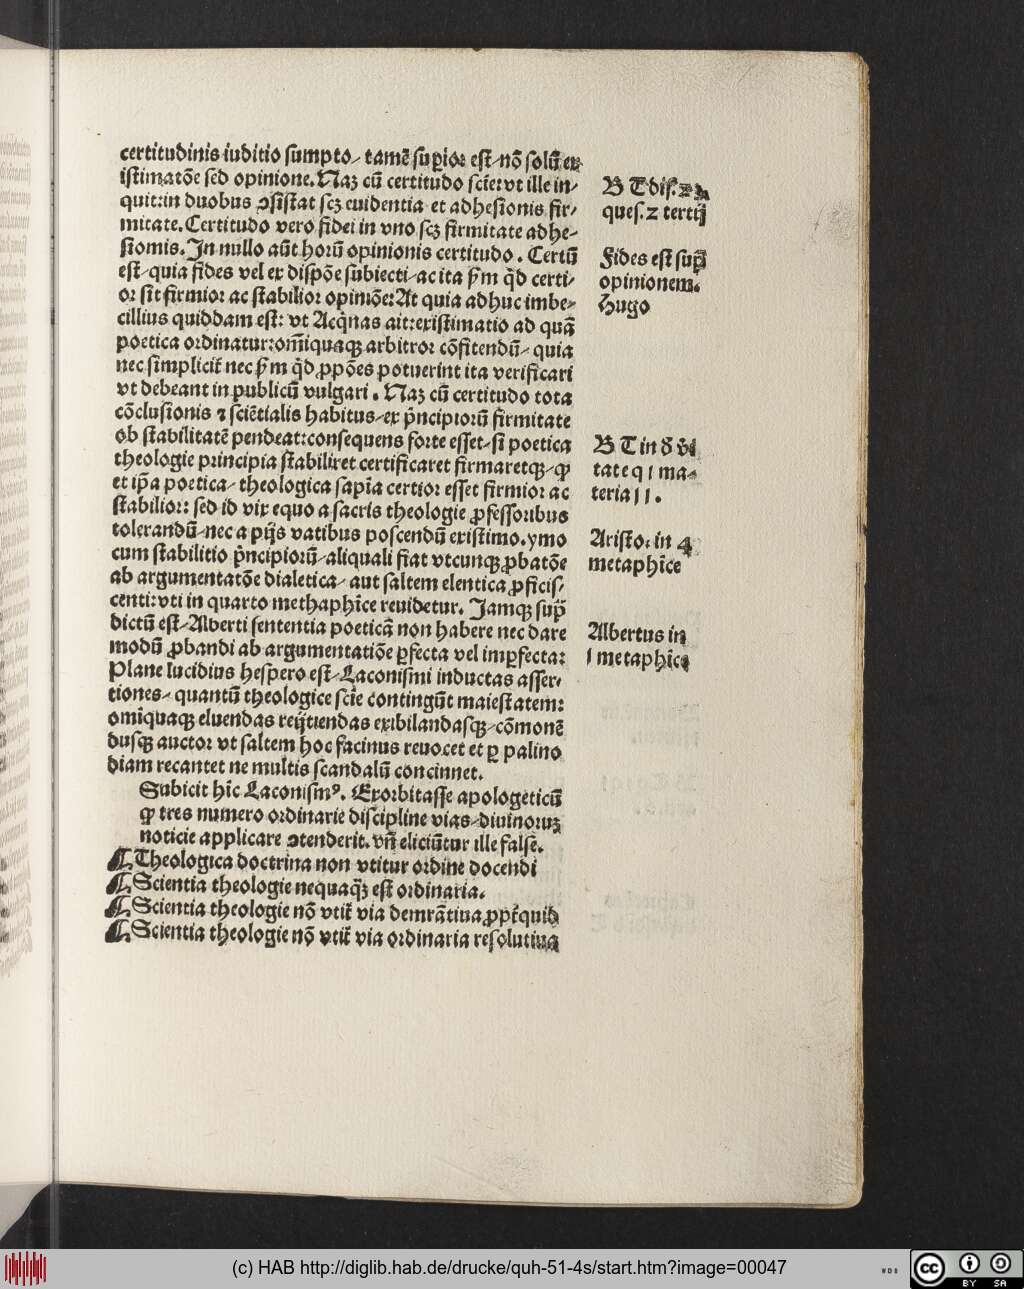 certitudinis iuditio sumpto/ tamē suꝑior est/ nō solū ex
istimatōe sed opinione. Naꝫ cū certitudo scīe: vt ille in/
quit: in duobus ↄsistat scꝫ euidentia et adhesionis fir/
mitate. Certitudo vero fidei in vno scꝫ firmitate adhe/
sionis. In nullo aūt horū opinionis certitudo. Certū
est/ quia fides vel ex dispōe subiecti/ ac ita ẜm q̄d certi/
or sit firmior ac stabilior opiniōe: At quia adhuc imbe/
cillius quiddam est: vt Acq̄nas ait: existimatio ad quā
poetica ordinatur: om̄iquaqꝫ arbitror cōfitendū/ quia
nec simplicit̄ nec ẜm q̄d ꝓpōes potuerint ita verificari
vt debeant in publicū vulgari. Naꝫ cū certitudo tota
cōclusionis ⁊ sciētialis habitus/ ex p̄ncipiorū firmitate
ob stabilitatē pendeat: consequens forte esset/ si poetica
theologie principia stabiliret certificaret firmaretqꝫ/ ꝙ
et ip̄a poetica/ theologica sapīa certior esset firmior ac
stabilior: sed id vix equo a sacris theologie ꝓfessoribus
tolerandū/ nec a pijs vatibus poscendū existimo. ymo
cum stabilitio p̄ncipiorū/ aliquali fiat vtcunqꝫ ꝓbatōe
ab argumentatōe dialetica/ aut saltem elentica ꝓficis/
centi: vti in quarto methaphīce reuidetur. Iamqꝫ sup̄
dictū est/ Alberti sententia poeticā non habere nec dare
modū ꝓbandi ab argumentatiōe ꝑfecta vel imꝑfecta:
Plane lucidius hespero est/ Laconismi inductas asser/
tiones/ quantū theologice scīe contingūt maiestatem:
omīquaqꝫ eluendas reijtiendas exibilandasqꝫ/ cōmonē
dusqꝫ auctor vt saltem hoc facinus reuocet et ꝑ palino
diam recantet ne multis scandalū concinnet.
Subicit hīc Laconismꝰ. Exorbitasse apologeticū
ꝙ tres numero ordinarie discipline vias/ diuinoruꝫ
noticie applicare ↄtenderit. vn̄ eliciūtur ille false.
¶ Theologica doctrina non vtitur ordine docendi
¶ Scientia theologie nequaqꝫ̄ est ordinaria.
¶ Scientia theologie nō vtit̄ via demrātiua ꝓpt̄ quid
¶ Scientia theologie nō vtit̄ via ordinaria resolutiua
B T dis.
ques. 2 tertij
Fides est sup̄
opinionem.
Hugo
B T in
tate q 1 ma/
teria 11.
Aristo: in 4
metaphīce
Albertus in
1 metaphīce
(c) HAB http://diglib.hab.de/drucke/quh-51-4s/start.htm?image=00047
WDB
cc
BY SA